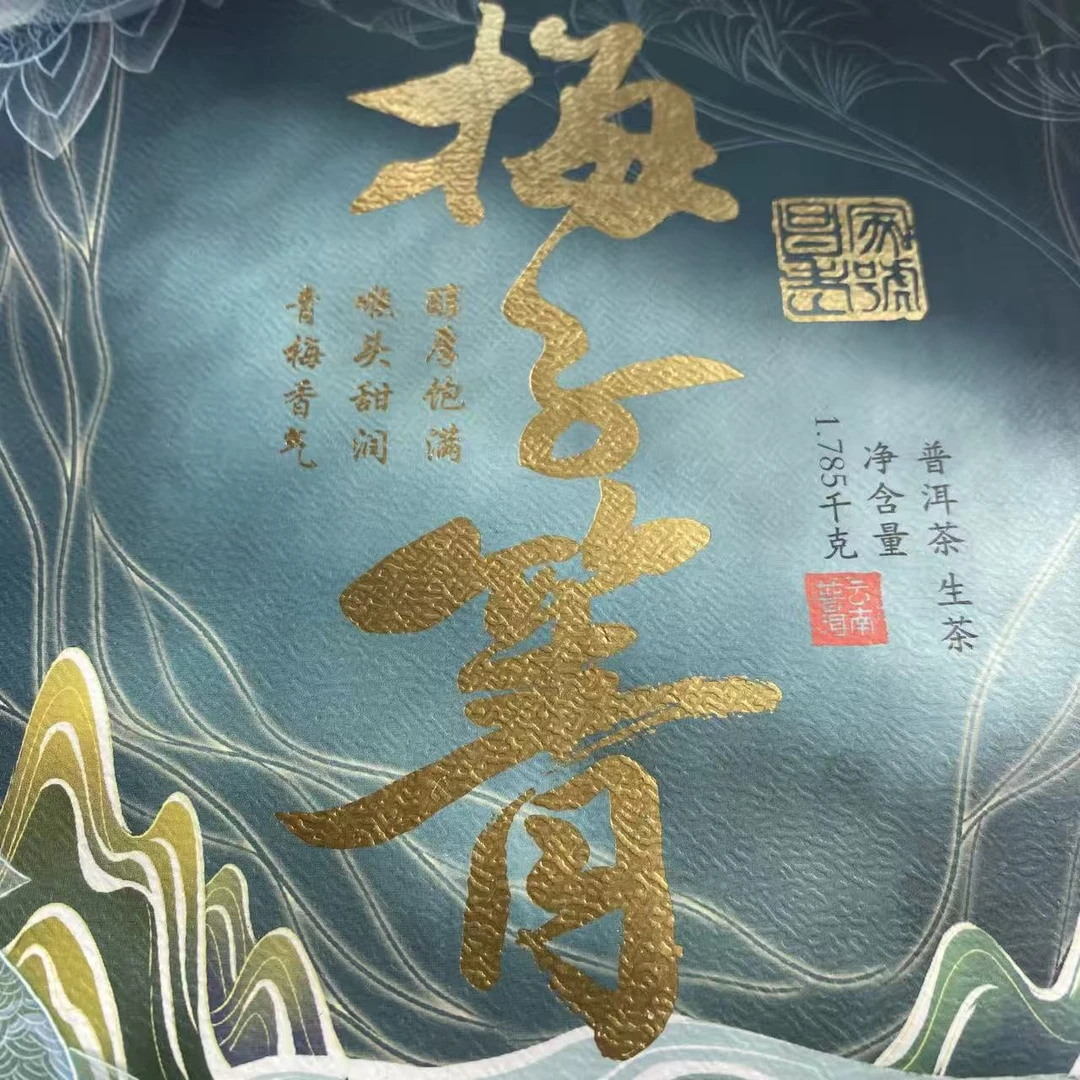 普洱茶 生茶
净含量
1.785千克
云南
普洱
梅子箐
醇厚饱满
喉头甜润
青梅香气